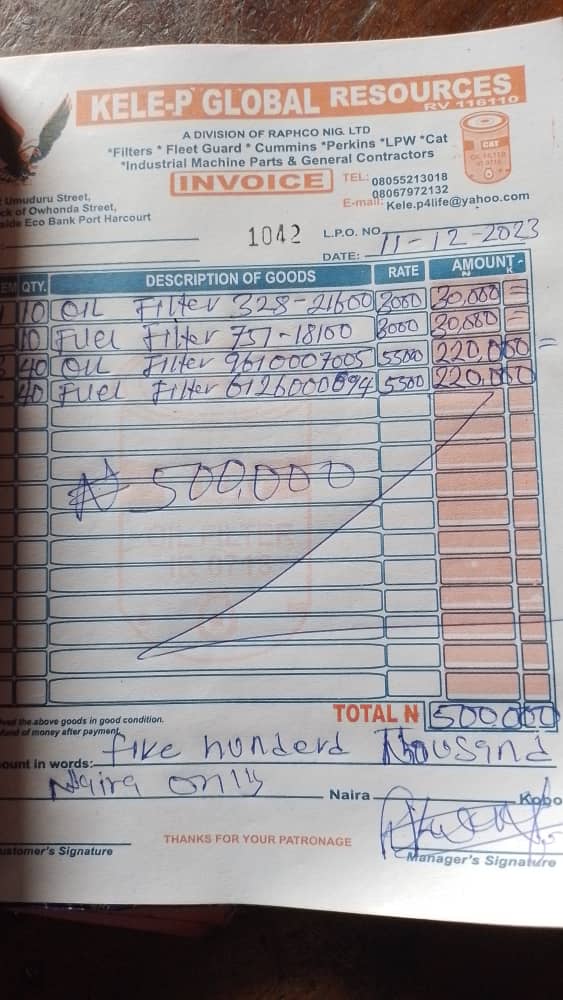 KELE-P GLOBAL RESOURCES
RV 116110
A DIVISION OF RAPHCO NIG. LTD
*Filters * Fleet Guard * Cummins *Perkins *LPW *Cat
*Industrial Machine Parts & General Contractors
CAT
INVOICE
TEL: 08055213018
08067972132
E-mail: Kele.p4life@yahoo.com
Umuduru Street,
ck of Owhonda Street,
side Eco Bank Port Harcourt
1042
L.P.O. NO.
DATE: 11-12-2023
EM QTY. DESCRIPTION OF GOODS RATE AMOUNT
N K
10 OIL Filter 328-21600 3000 30,000 =
10 Fuel Filter 751-18100 3000 30,000 =
40 OIL Filter 9610007005 5500 220,000 =
40 Fuel Filter 6126000694 5500 220,000
₦ 500,000
OIL FILTER
TOTAL N 500,000
ved the above goods in good condition.
fund of money after payment.
ount in words: five hunderd Thousand
Naira only
Naira Kobo
THANKS FOR YOUR PATRONAGE
ustomer's Signature
Manager's Signature